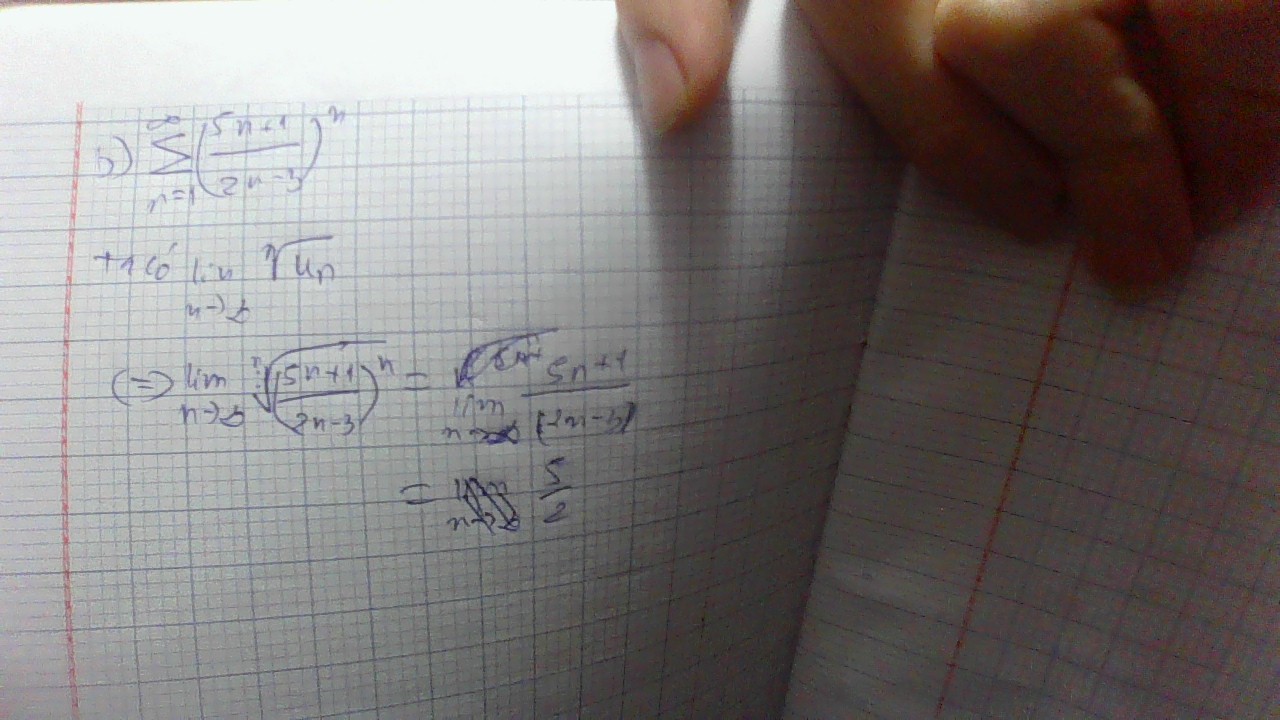 b) ∑_{n=1}^{∞} ((5n+1)/(2n-3))^n
+ có lim_{n→∞} ⁿ√Un
(=) lim_{n→∞} ⁿ√((5n+1)/(2n-3))^n = lim_{n→∞} (5n+1)/(2n-3)
= 5/2